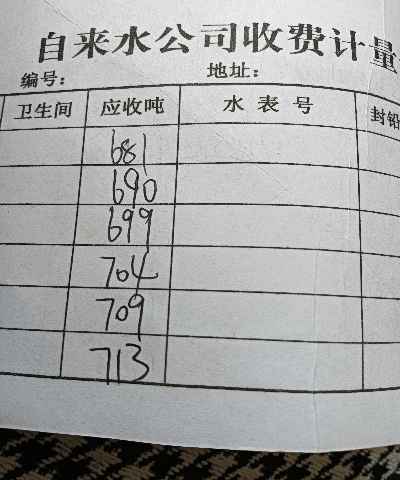 自来水公司收费计量
编号： 地址：
卫生间 应收吨 水表号 封铅
681
690
699
704
709
713